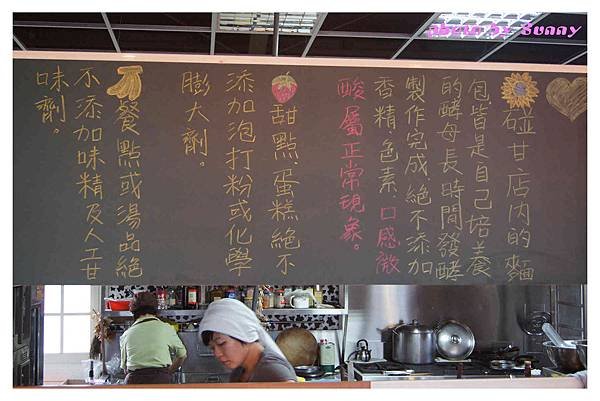 碰甘店內的麵
包皆是自己培養
的酵母長時間發酵
製作完成,絕不添加
香精、色素,口感微
酸屬正常現象。
甜點、蛋糕絕不
添加泡打粉或化學
膨大劑。
餐點或湯品絕
不添加味精及人工甘
味劑。
album by Sunny